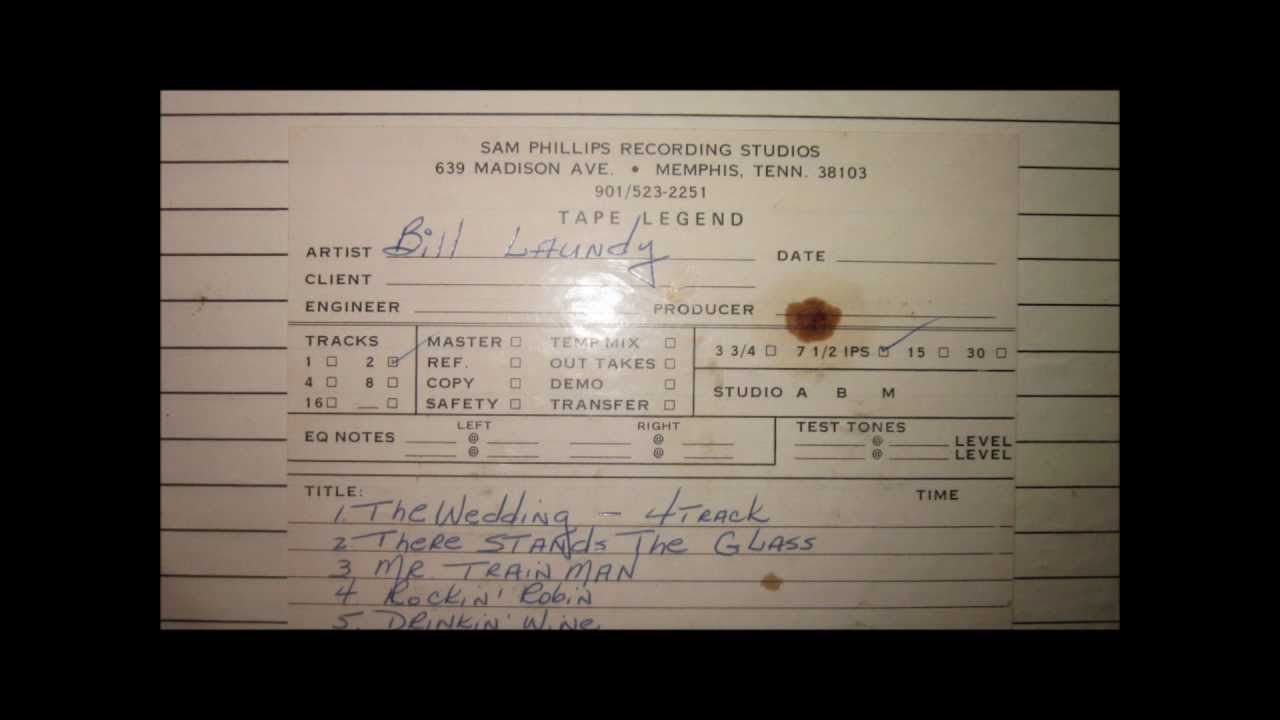 SAM PHILLIPS RECORDING STUDIOS
639 MADISON AVE. • MEMPHIS, TENN. 38103
901/523-2251
TAPE LEGEND
ARTIST Bill Laundy DATE
CLIENT
ENGINEER PRODUCER
TRACKS MASTER TEMP MIX
1 2 REF. OUT TAKES 3 3/4 7 1/2 IPS 15 30
4 8 COPY DEMO STUDIO A B M
16 __ SAFETY TRANSFER
LEFT RIGHT TEST TONES
EQ NOTES @ @ @ LEVEL
@ @ @ LEVEL
TITLE: TIME
1. The Wedding - 4 TRACK
2. There STANds The GLASS
3 MR. TRAIN MAN
4 Rockin' Robin
5. DRINKIN' Wine